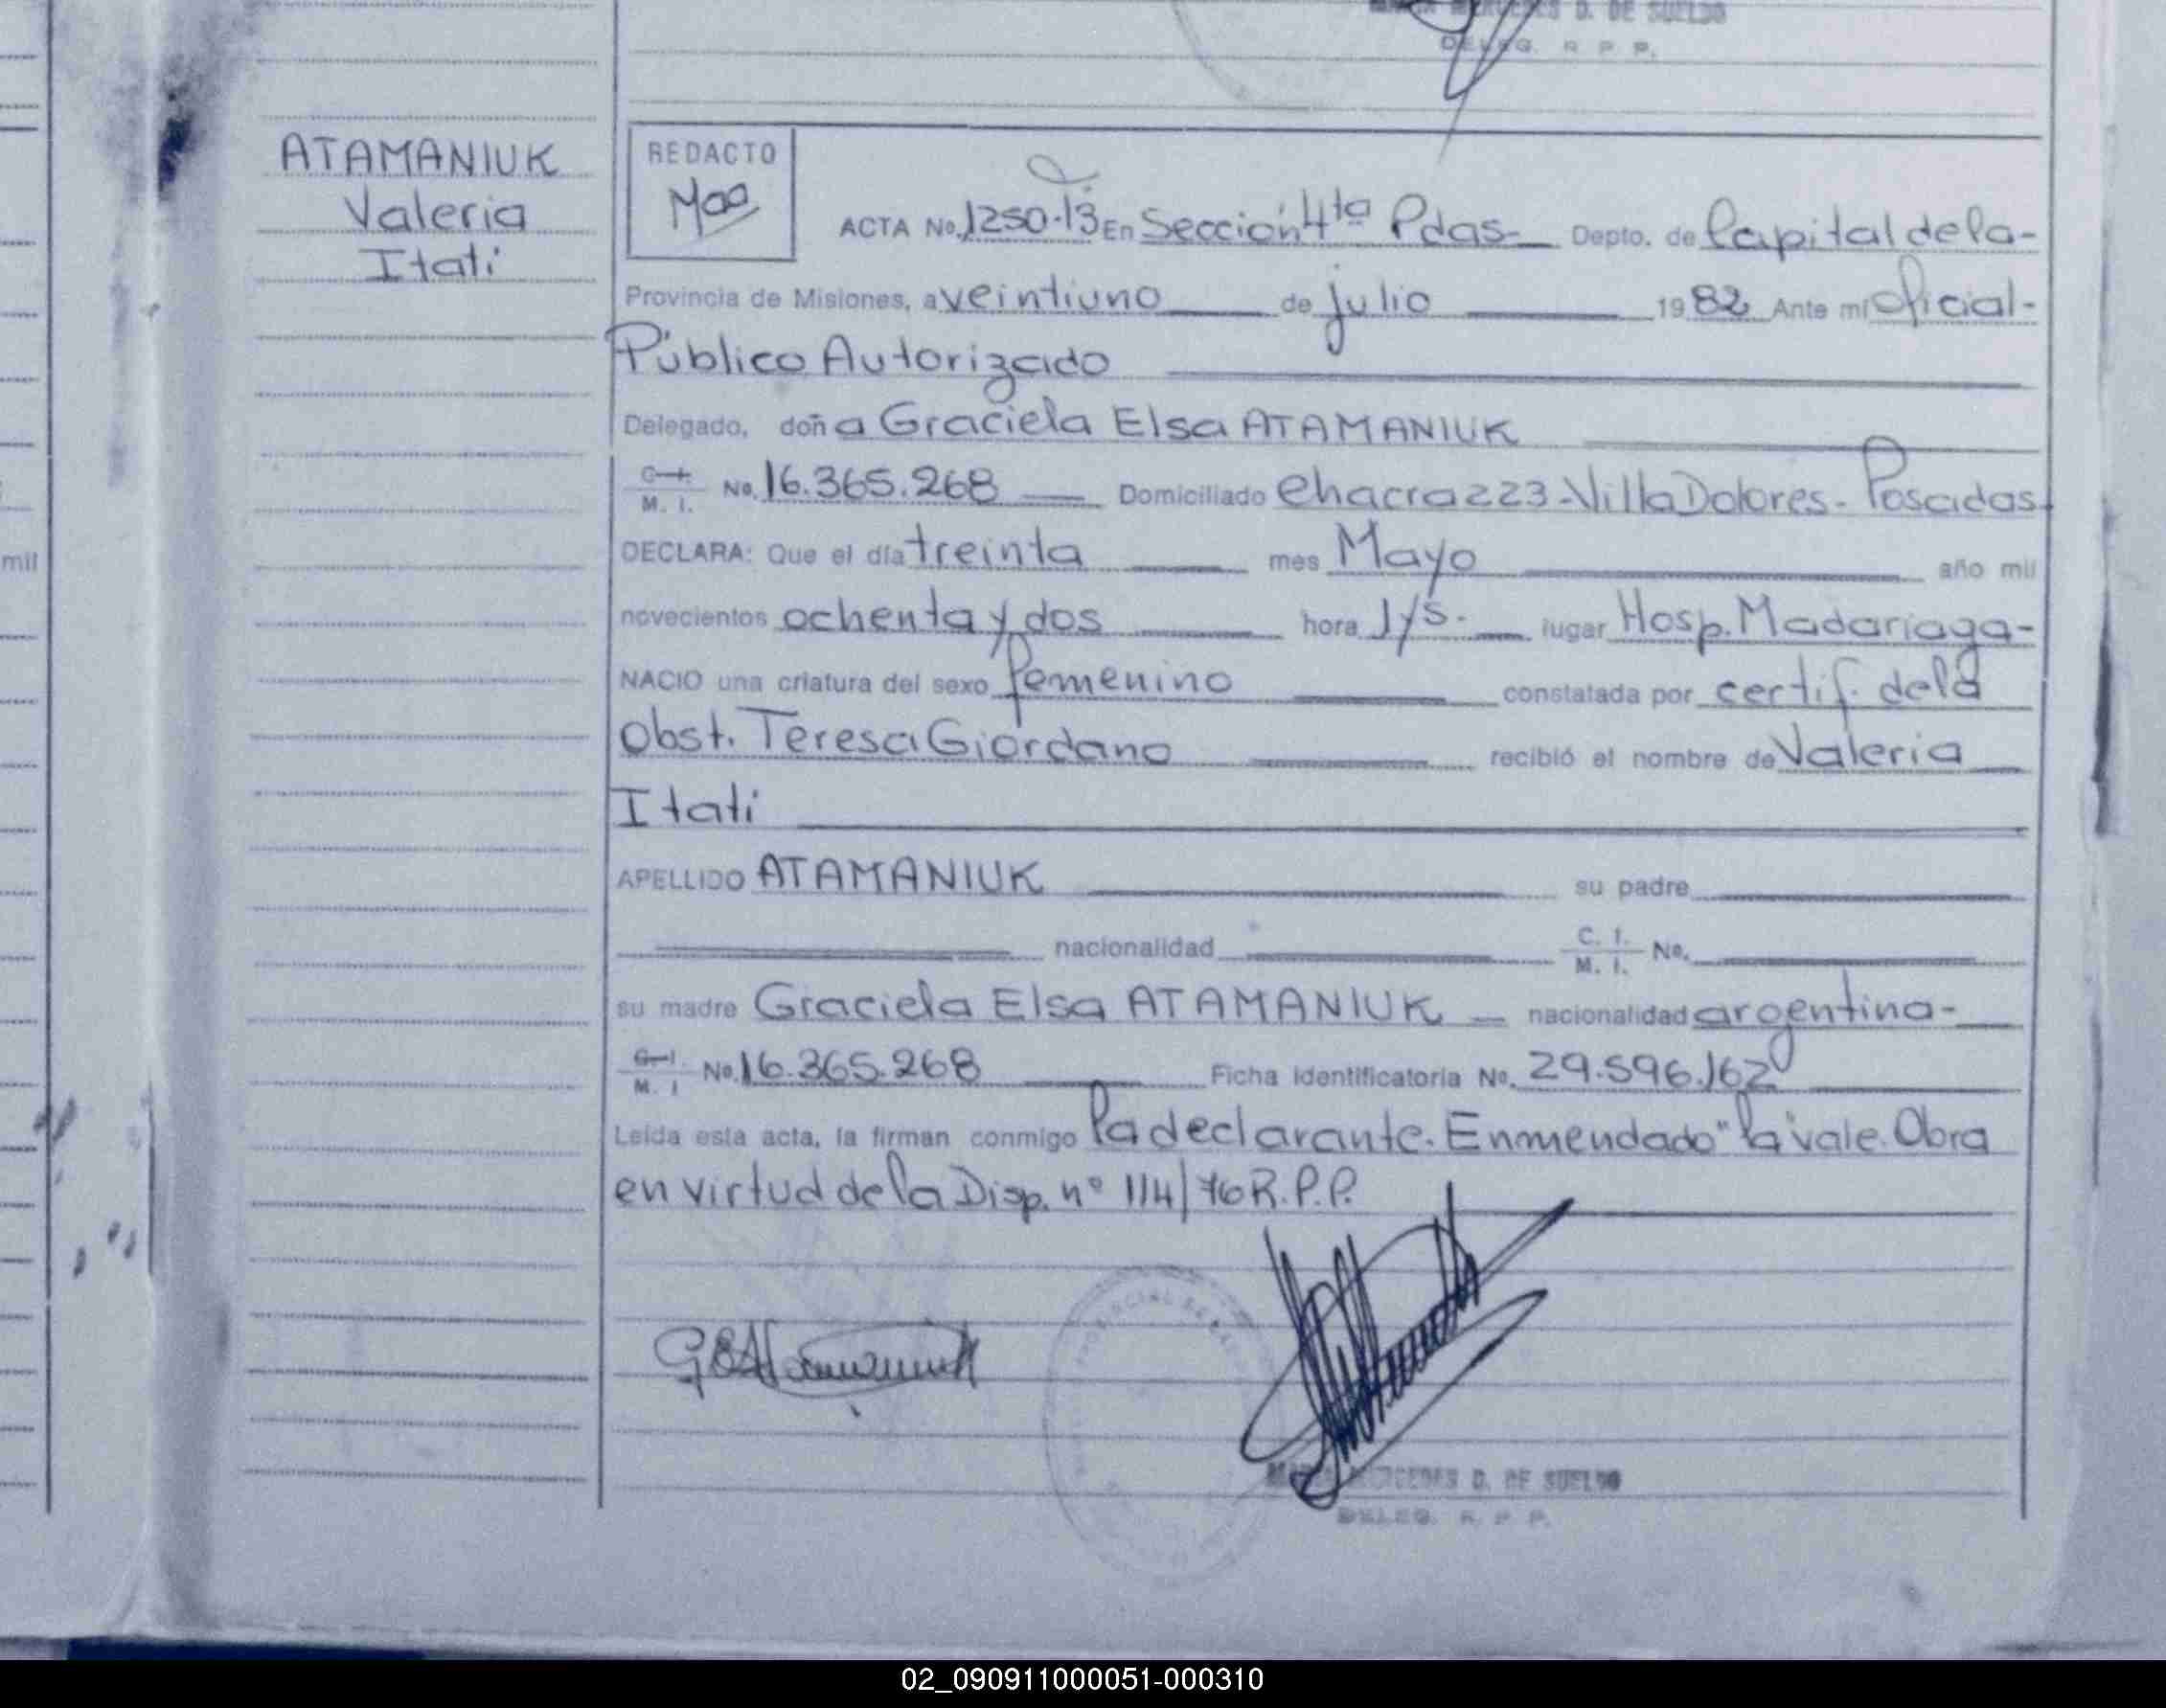 MARIA MERCEDES D. DE SUELDO
DELEG. R. P. P.
ATAMANIUK
Valeria
Itati
REDACTO
ACTA No. 1250-T3 En Sección 4ta Pdas- Depto. de Capital de la-
Provincia de Misiones, a veintiuno de julio 1982 Ante mí oficial-
Público Autorizado
Delegado, doña Graciela Elsa ATAMANIUK
C. I. M. I. No. 16.365.268 Domiciliado Chacra 223-Villa Dolores- Posadas
DECLARA: Que el día treinta mes Mayo año mil
novecientos ochenta y dos hora 1y5. lugar Hosp. Madariaga-
NACIO una criatura del sexo femenino constatada por certif. de la
Obst. Teresa Giordano recibió el nombre de Valeria
Itati
APELLIDO ATAMANIUK su padre
nacionalidad C. I. M. I. No.
su madre Graciela Elsa ATAMANIUK nacionalidad argentina-
C. I. M. I No. 16.365.268 Ficha Identificatoria No. 29.596.162
Leída esta acta, la firman conmigo la declarante. Enmendado "la" vale. Obra
en virtud de la Disp. nº 114/76 R.P.P.
MARIA MERCEDES D. DE SUELDO
DELEG. R. P. P.
mil
02_090911000051-000310